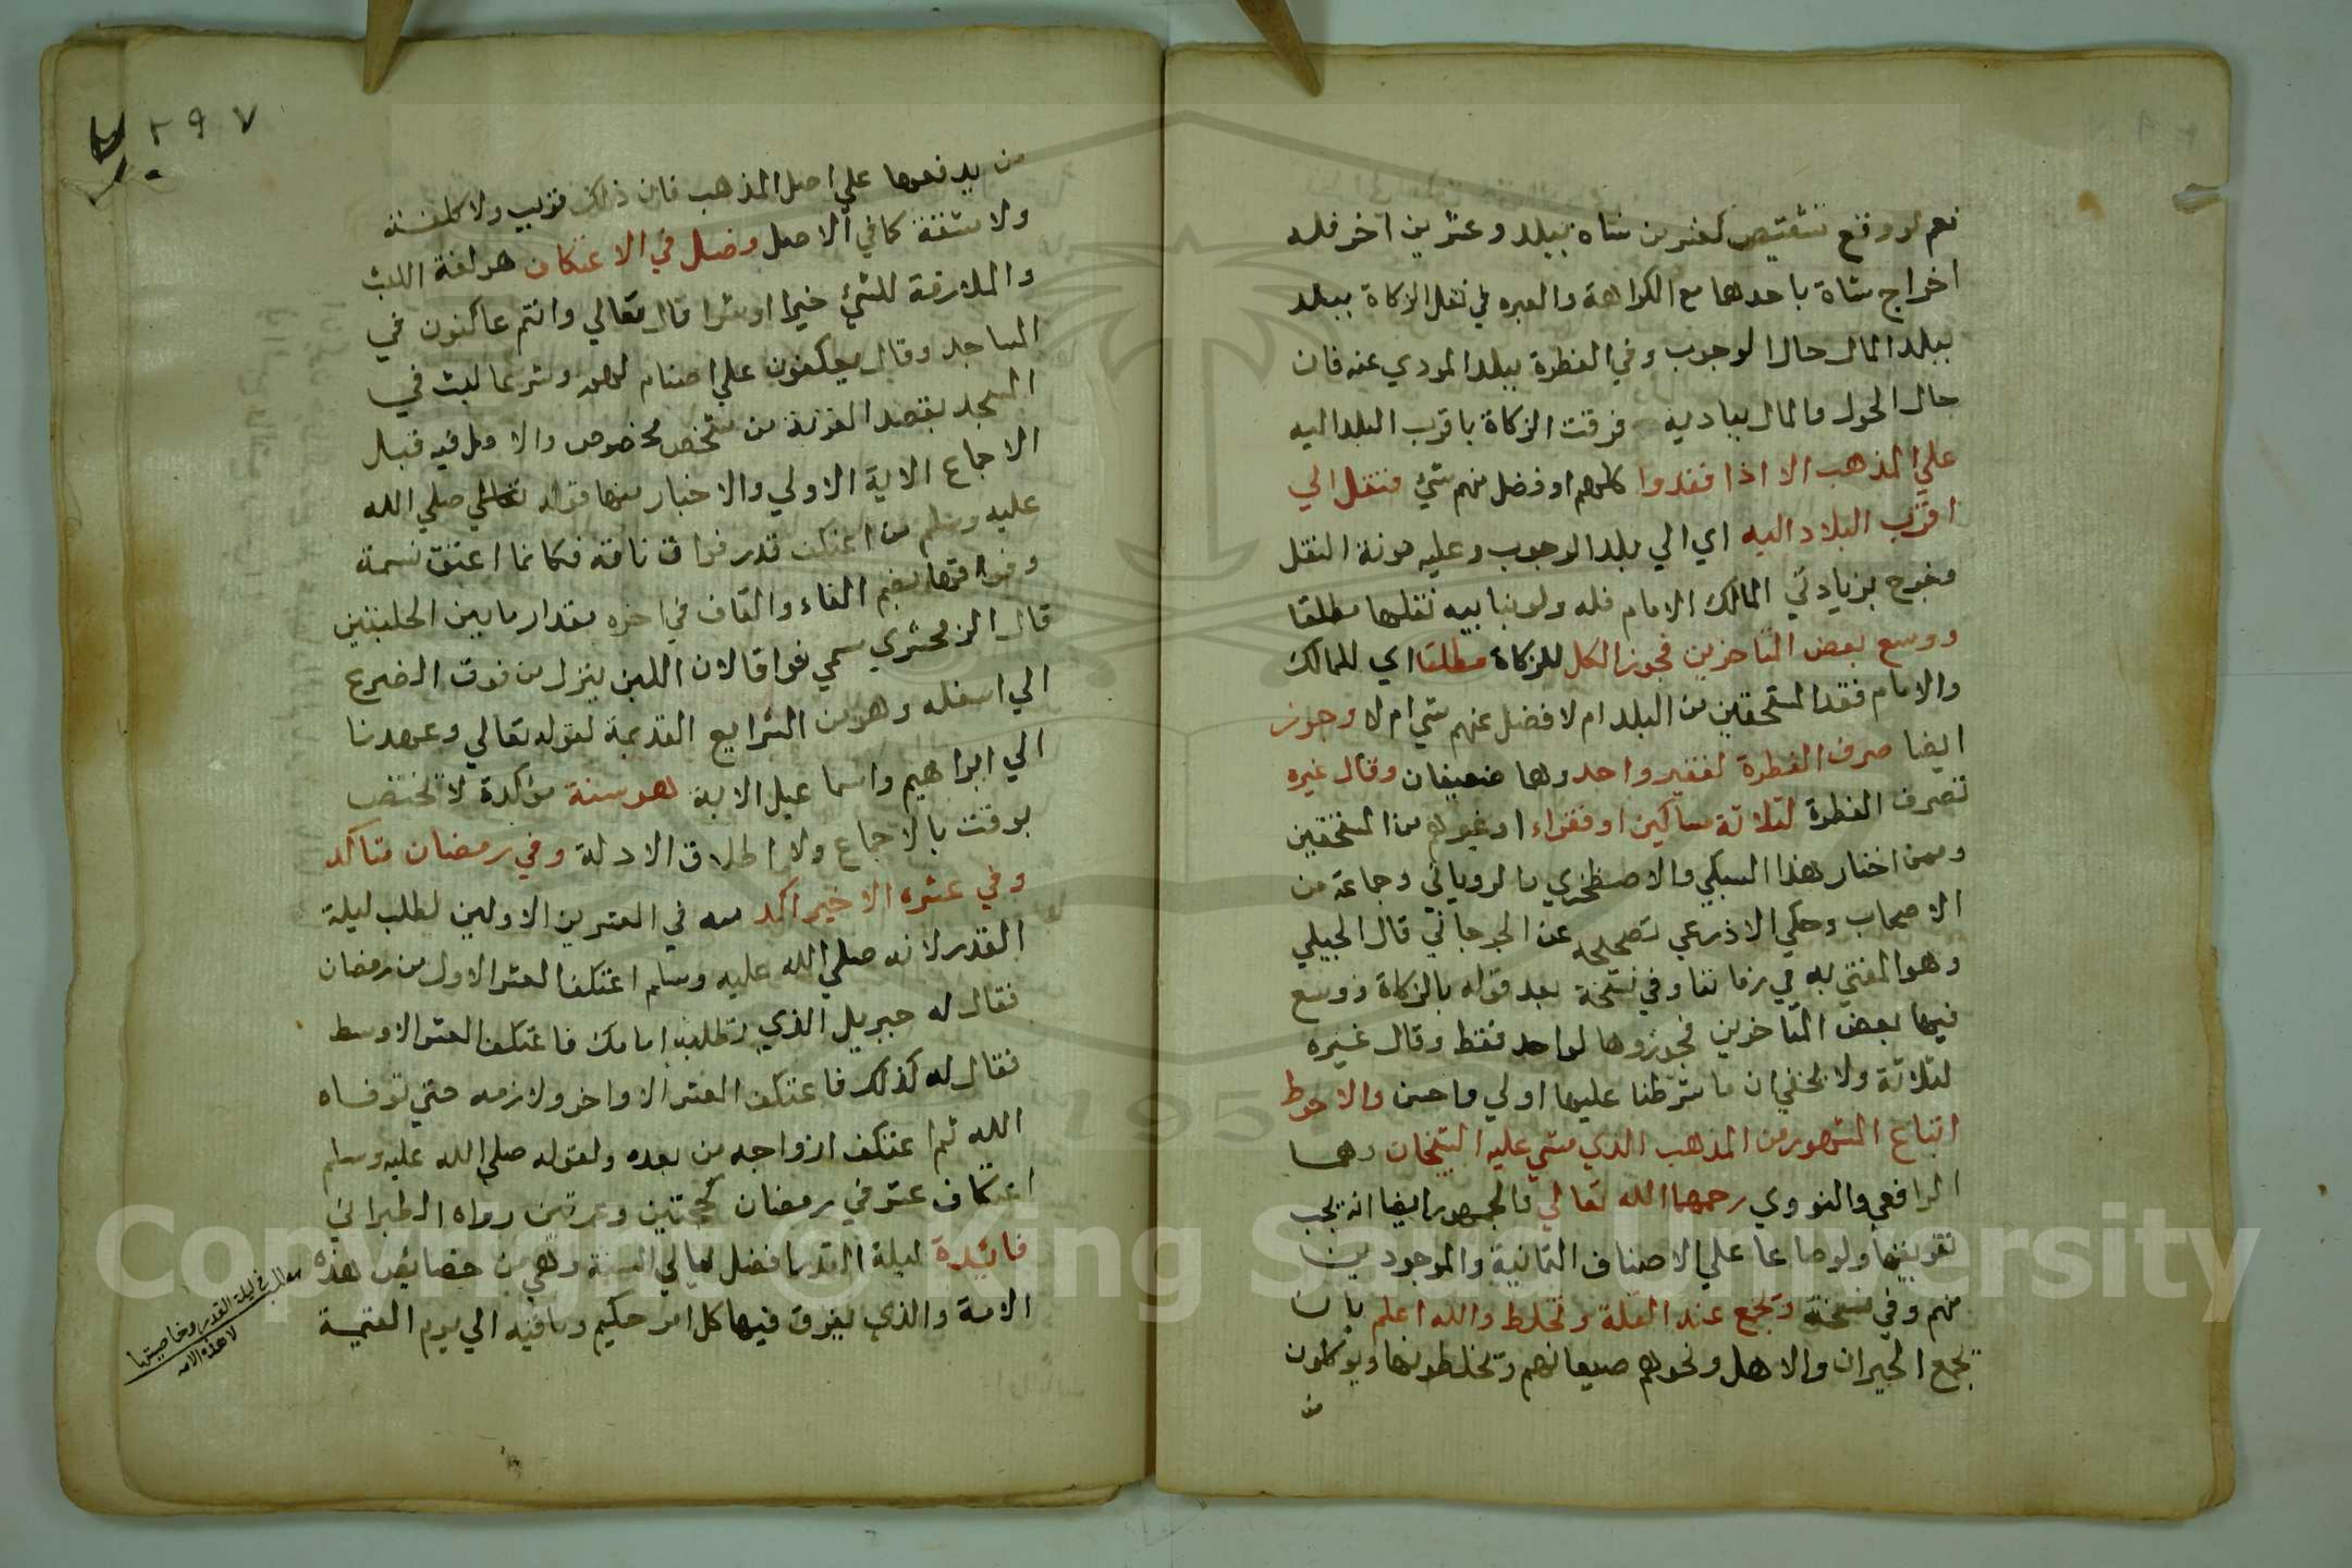 نعم لو وقع تشقيص كعشرين شاه ببلد وعشرين آخر فله
اخراج شاة باحدها مع الكراهة والعبره في نقل الزكاة ببلد
ببلد المال حال الوجوب وفي الفطرة ببلد المودي عنه فان
حال الحول والمال ببادية فرقت الزكاة باقرب البلد اليه
علي المذهب الا اذا فقدوا كلهم او فضل منهم شيء فنقل الي
اقرب البلاد اليه اي الي بلد الوجوب وعليه مونة النقل
وخرج بزيادتي المالك الامام فله ولو بنايبه نقلها مطلقا
ووسع بعض المتاخرين فجوز الكل للزكاة مطلقا اي للمالك
والامام فقد المستحقين من البلد ام لا فضل عنهم شي ام لا وجوز
ايضا صرف الفطرة لفقير واحد وهما ضعيفان وقال غيره
تصرف الفطرة لثلاثة مساكين او فقراء او غيرهم من المستحقين
وممن اختار هذا السبكي والاصطخري والروياني وجماعة من
الاصحاب وحكي الاذرعي تصحيحه عن الجرجاني قال الجيلي
وهو المفتي به في زماننا وفي نسخة بعد قوله بالزكاة ووسع
فيها بعض المتاخرين فجوزوها لواحد فقط وقال غيره
لثلاثة ولا يخفي ان ما شرطنا عليها اولي واحسن والاحوط
اتباع المشهور من المذهب الذي مشي عليه الشيخان وهما
الرافعي والنووي رحمهما الله تعالي والجمهور ايضا انه يجب
تفريقها ولو صاعا علي الاصناف الثمانية والموجودين
منهم وفي نسخة وتجمع عند القلة وتخلط والله اعلم بان
تجمع الجيران والاهل ونحوهم صيعانهم وتخلطونها ويوكلون
من
٢٩٧
من يدفعها علي اصل المذهب فان ذلك قريب ولا كلفة
ولا مشقة كما في الاصل وصل في الاعتكاف هو لغة اللبث
والملازمة للشيء خيرا او شرا قال تعالي وانتم عاكفون في
المساجد وقال يعكفون علي اصنام لهم وشرعا لبث في
المسجد بقصد القربة من شخص مخصوص والاصل فيه قبل
الاجماع الاية الاولي والاخبار منها قوله تعالي صلي الله
عليه وسلم من اعتكف قدر فواق ناقة فكانما اعتق نسمة
وفواقها بضم الفاء والقاف في اخره مقدار ما بين الحلبتين
قال الزمخشري سمي فواقا لان اللبن ينزل من فوق الضرع
الي اسفله وهو من الشرايع القديمة لقوله تعالي وعهدنا
الي ابراهيم واسماعيل الاية هو سنة مؤكدة لا تختص
بوقت بالاجماع ولاطلاق الادلة وفي رمضان متاكد
وفي عشره الاخير اكد منه في العشرين الاولين لطلب ليلة
القدر لانه صلي الله عليه وسلم اعتكف العشر الاول من رمضان
فقال له جبريل الذي تطلبه امامك فاعتكف العشر الاوسط
فقال له كذلك فاعتكف العشر الاواخر ولازمه حتي توفاه
الله ثم اعتكف ازواجه من بعده ولقوله صلي الله عليه وسلم
اعتكاف عشر في رمضان كحجتين وعمرتين رواه الطبراني
فائدة ليلة القدر افضل ليالي السنة وهي من خصايص هذه
الامة والذي يفرق فيها كل امر حكيم وباقيه الي يوم القيمة
مطلب في ليلة القدر وخاصيتها
لاهذه الامه
Copyright © King Saud University
195